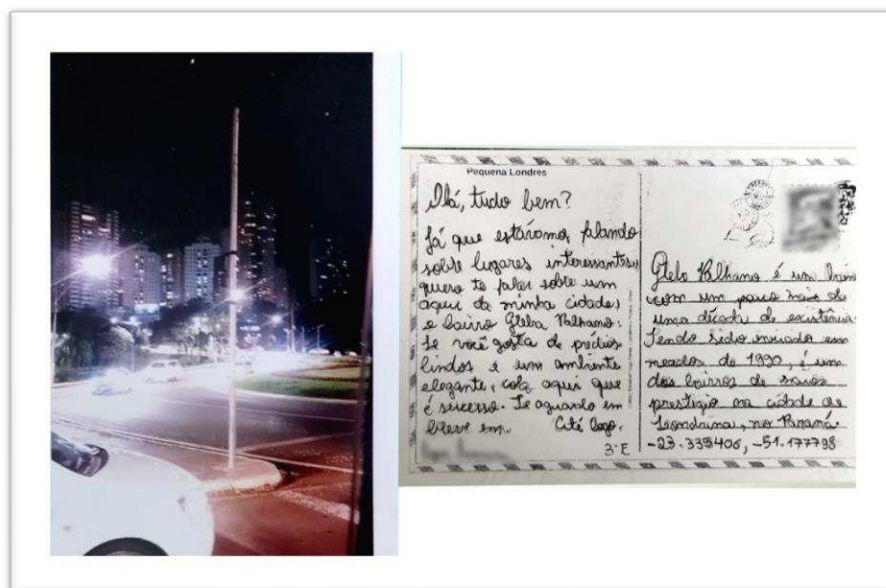 Pequena Londres
Olá, tudo bem?
Já que estávamos falando
sobre lugares interessantes,
quero te falar sobre um
aqui da minha cidade,
o bairro Gleba Palhano.
Se você gosta de prédios
lindos e um ambiente
elegante, cola aqui que
é sucesso. Te aguardo em
breve em. Até logo.
3ºE
Gleba Palhano é um bairro
com um pouco mais de
uma década de existência.
Tendo sido iniciado em
meados de 1990, é um
dos bairros de maior
prestígio na cidade de
Londrina, no Paraná.
-23.335406, -51.177798